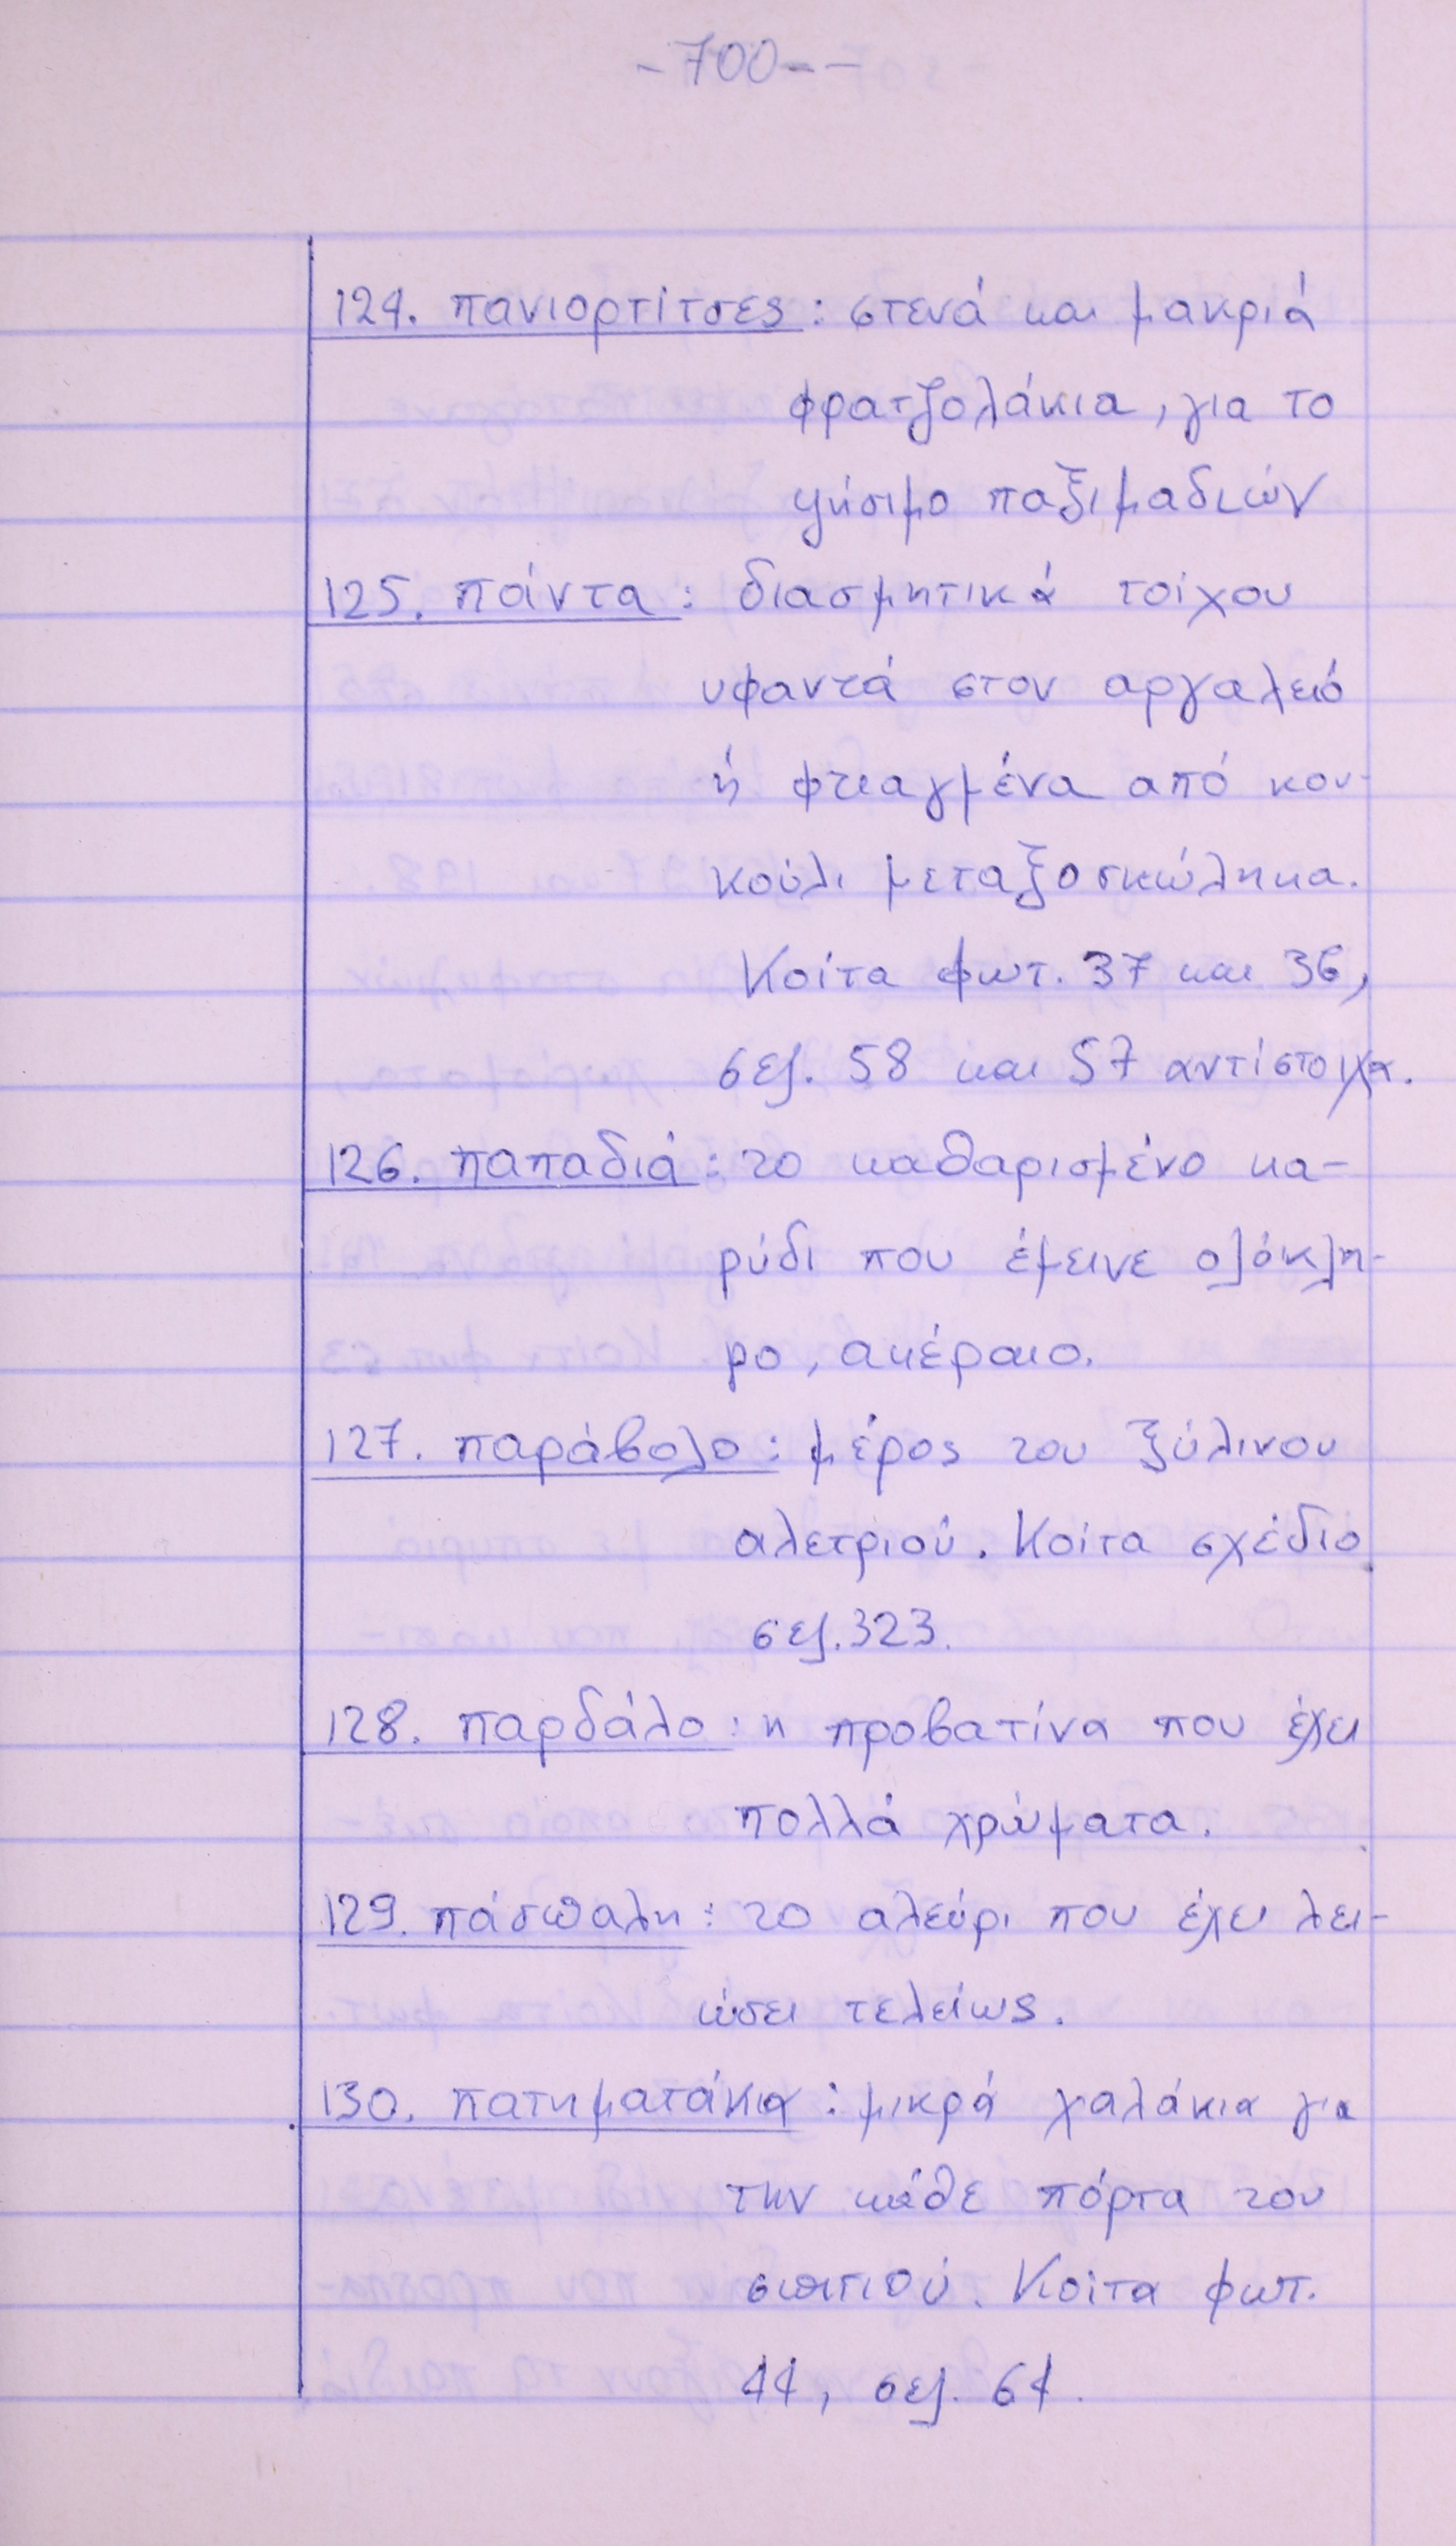 -700--
124. πανιορτίτσες: στενά και μακριά
φρατζολάκια, για το
ψήσιμο παξιμαδιών
125. πάντα: διασμητικά τοίχου
υφαντά στον αργαλειό
ή φτιαγμένα από κου-
κούλι μεταξοσκώληκα.
Κοίτα φωτ. 37 και 36,
σελ. 58 και 57 αντίστοιχα.
126. παπαδιά: το καθαρισμένο κα-
ρύδι που έμεινε ολόκλη-
ρο, ακέραιο.
127. παράβολο: μέρος του ξύλινου
αλετριού. Κοίτα σχέδιο
σελ. 323.
128. παρδάλο: η προβατίνα που έχει
πολλά χρώματα.
129. πάσπαλη: το αλεύρι που έχει λει-
ώσει τελείως.
130. πατηματάκια: μικρά χαλάκια για
την κάθε πόρτα του
σπιτιού. Κοίτα φωτ.
44, σελ. 64.